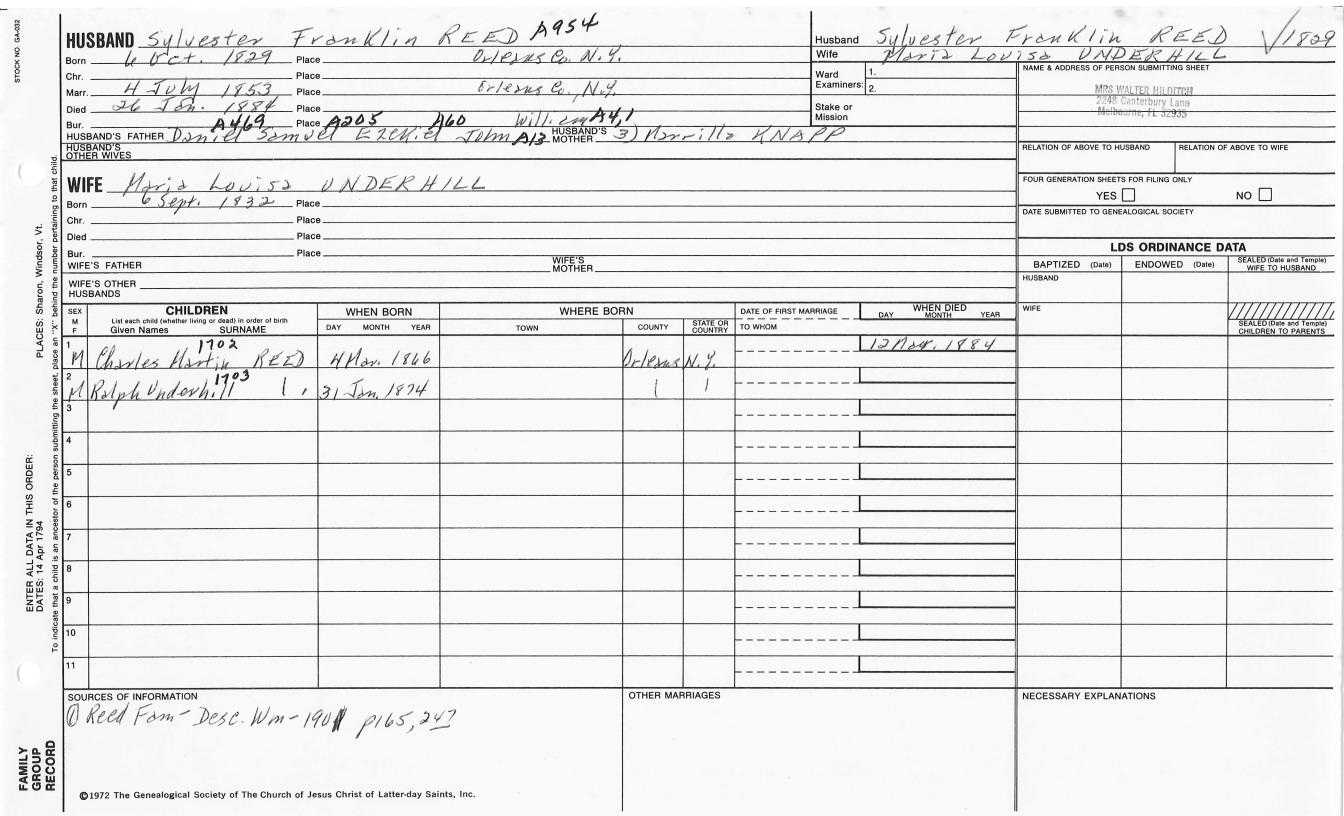 STOCK NO. GA-032
HUSBAND Sylvester Franklin REED A954
Born 6 Oct. 1829 Place Orleans Co. N.Y.
Chr. Place
Marr. 4 July 1853 Place Orleans Co., N.Y.
Died 26 Jan. 1884 Place
Bur. A469 Place A205 A60 William A4,1
HUSBAND'S FATHER Daniel Samuel Ezekiel John A13 HUSBAND'S MOTHER 3) Marrilla KNAPP
HUSBAND'S OTHER WIVES
WIFE Maria Louisa UNDERHILL
Born 6 Sept. 1832 Place
Chr. Place
Died Place
Bur. Place
WIFE'S FATHER WIFE'S MOTHER
WIFE'S OTHER HUSBANDS
Husband Sylvester Franklin REED √1829
Wife Maria Louisa UNDERHILL
Ward Examiners: 1.
2.
Stake or Mission
NAME & ADDRESS OF PERSON SUBMITTING SHEET
MRS WALTER HILDITCH
2248 Canterbury Lane
Melbourne, FL 32935
RELATION OF ABOVE TO HUSBAND RELATION OF ABOVE TO WIFE
FOUR GENERATION SHEETS FOR FILING ONLY
YES NO
DATE SUBMITTED TO GENEALOGICAL SOCIETY
LDS ORDINANCE DATA
BAPTIZED (Date) ENDOWED (Date) SEALED (Date and Temple) WIFE TO HUSBAND
HUSBAND
WIFE
SEALED (Date and Temple) CHILDREN TO PARENTS
SEX M F
CHILDREN
List each child (whether living or dead) in order of birth
Given Names SURNAME
WHEN BORN
DAY MONTH YEAR
WHERE BORN
TOWN COUNTY STATE OR COUNTRY
DATE OF FIRST MARRIAGE
TO WHOM
WHEN DIED
DAY MONTH YEAR
1 M Charles Martin 1702 REED 4 Mar. 1866 Orleans N.Y. 12 Mar. 1884
2 M Ralph Underhill 1703 31 Jan. 1874
3
4
5
6
7
8
9
10
11
SOURCES OF INFORMATION
① Reed Fam - Desc. Wm - 1901 p165, 247
OTHER MARRIAGES
NECESSARY EXPLANATIONS
©1972 The Genealogical Society of The Church of Jesus Christ of Latter-day Saints, Inc.
FAMILY GROUP RECORD
ENTER ALL DATA IN THIS ORDER:
DATES: 14 Apr 1794
PLACES: Sharon, Windsor, Vt.
To indicate that a child is an ancestor of the person submitting the sheet, place an "X" behind the number pertaining to that child.